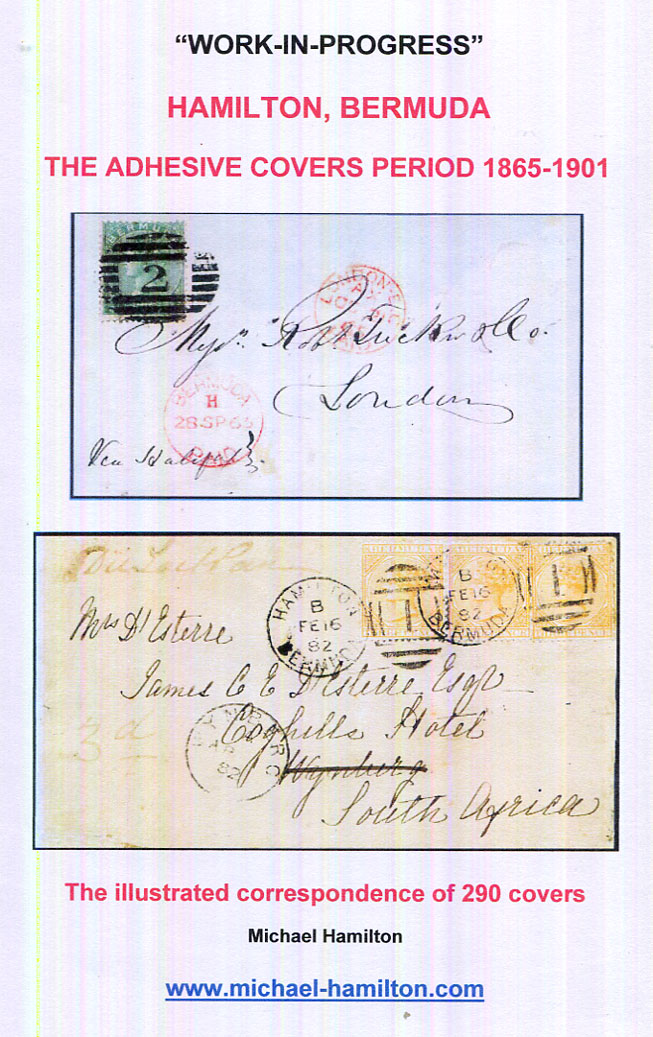 “WORK-IN-PROGRESS”
HAMILTON, BERMUDA
THE ADHESIVE COVERS PERIOD 1865-1901
BERMUDA
2
LONDON E
Robt
London
BERMUDA
H
28 SP 65
PAID
Via Halifax
HAMILTON
B
FE 16
82
BERMUDA
1
HAMILTON
B
FE 16
82
BERMUDA
1
Mrs D'Esterre
James C E D'Esterre Esqr
Coghills Hotel
3d
82
Wynberg
South Africa
The illustrated correspondence of 290 covers
Michael Hamilton
www.michael-hamilton.com